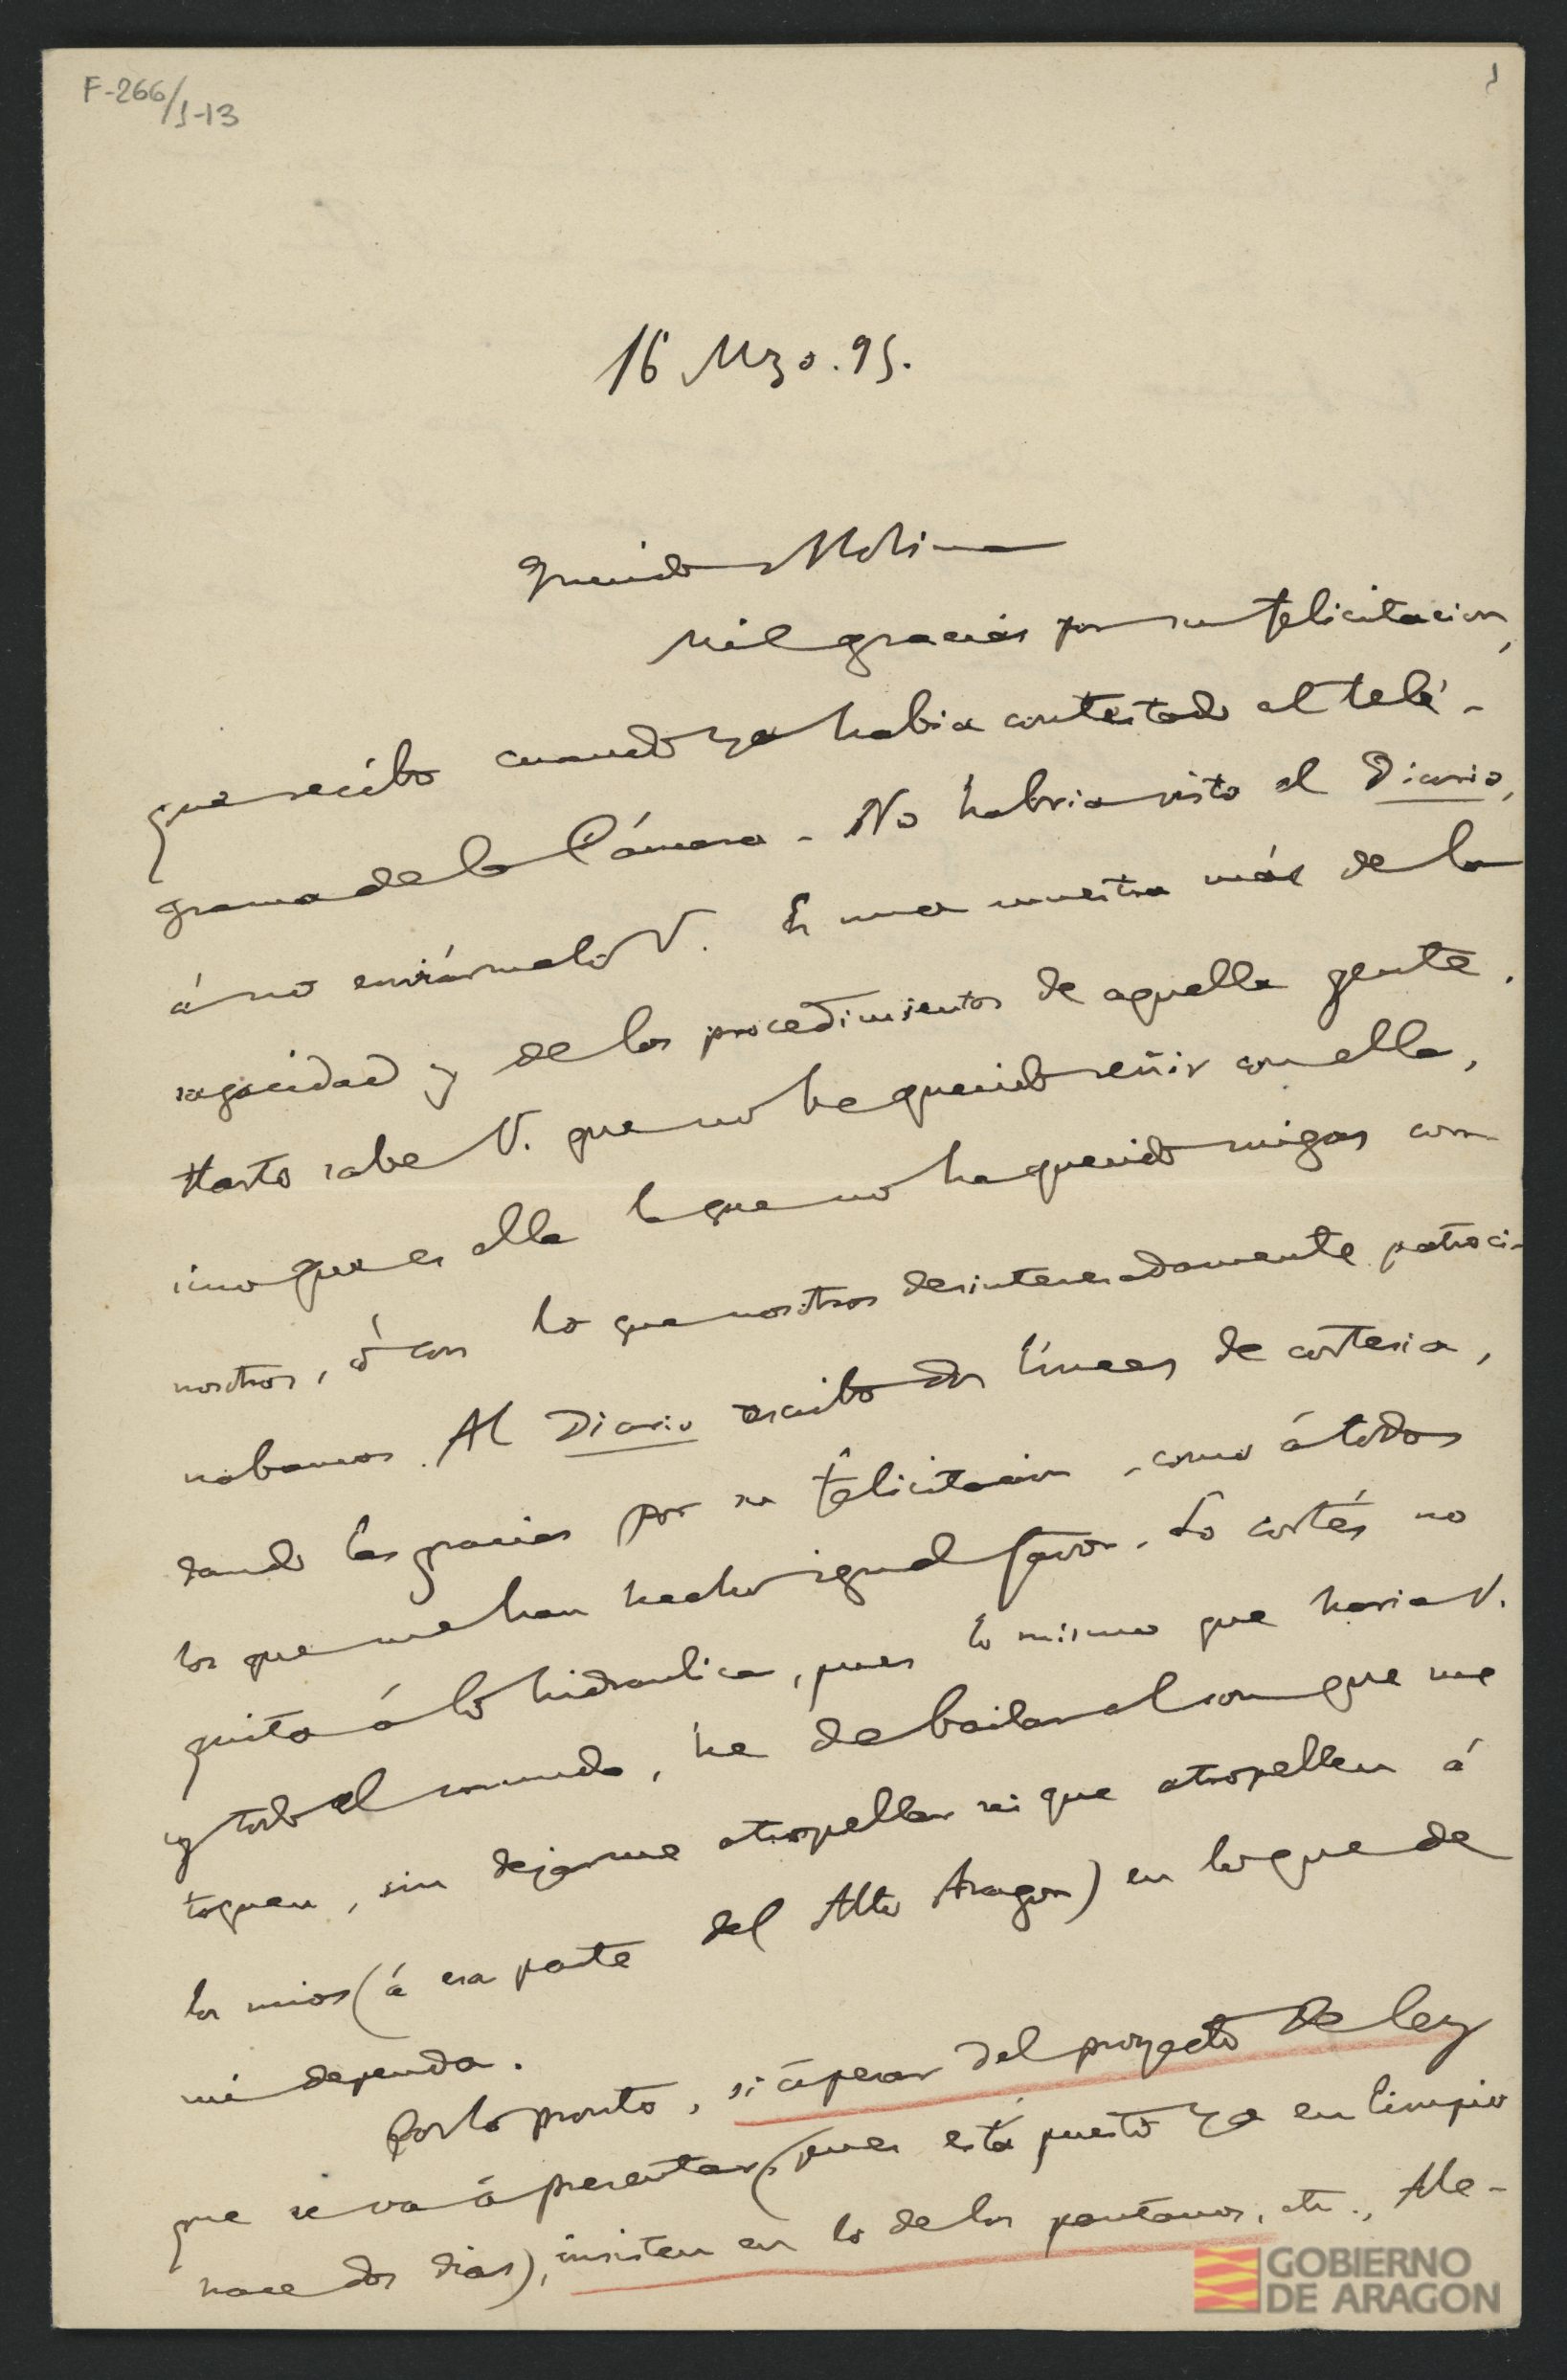 F-266/1-13
1
16 Mzo. 95.
Querido Molina
Mil gracias por su felicitacion,
que recibo cuando ya habia contestado al telé-
grama de la Cámara - No habria visto el Diario,
á no enviármelo V. Es una muestra más de la
sagacidad y de los procedimientos de aquella gente.
Harto sabe V. que no he querido reñir con ella,
sino que es ella la que no ha querido migas con
nosotros, ó con lo que nosotros desinteresadamente patroci-
nábamos. Al Diario escribo dos líneas de cortesia,
dando las gracias por su felicitacion, como á todos
los que me han hecho igual favor. Lo cortés no
quita á lo hidraulico, pues lo mismo que haria V.
y todo el mundo, he de bailar al son que me
toquen, sin dejarme atropellar ni que atropellen á
los mios (á esa parte del Alto Aragon) en lo que de
mi dependa.
Por lo pronto, si á pesar del proyecto de ley
que se va á presentar (pues está puesto ya en limpio
hace dos dias), insisten en lo de los pantanos, etc., Ale-
GOBIERNO
DE ARAGON